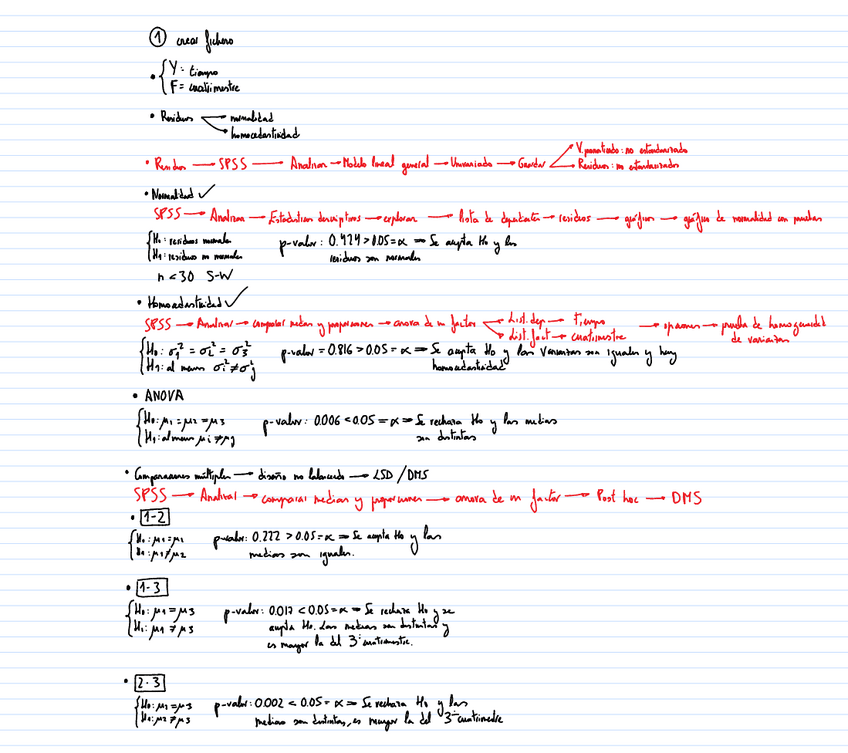 ① crear fichero
• { Y = tiempo
F = cuatrimestre
• Residuos → normalidad
→ homocedasticidad
• Residuos → SPSS → Analizar → Modelo lineal general → Univariado → Guardar → V. pronosticado: no estandarizado
→ Residuos: no estandarizado
• Normalidad ✓
SPSS → Analizar → Estadísticos descriptivos → explorar → lista de dependientes → residuos → gráficos → gráfico de normalidad con pruebas
{ H₀: residuos normales
H₁: residuos no normales
p-valor: 0.424 > 0.05 = α ⇒ Se acepta H₀ y los
residuos son normales
n < 30 S-W
• Homocedasticidad ✓
SPSS → Analizar → comparar medias y proporciones → anova de un factor → List. dep → Tiempo
→ dist. fact → cuatrimestre
→ opciones → prueba de homogeneidad
de varianzas
{ H₀: σ₁² = σ₂² = σ₃²
H₁: al menos σᵢ² ≠ σⱼ²
p-valor = 0.816 > 0.05 = α ⇒ Se acepta H₀ y las varianzas son iguales y hay
homocedasticidad
• ANOVA
{ H₀: μ₁ = μ₂ = μ₃
H₁: al menos μi ≠ μj
p-valor: 0.006 < 0.05 = α ⇒ Se rechaza H₀ y las medias
son distintas
• Comparaciones múltiples → diseño no balanceado → LSD / DMS
SPSS → Analizar → comparar medias y proporciones → anova de un factor → Post hoc → DMS
• 1-2
{ H₀: μ₁ = μ₁
H₁: μ₁ ≠ μ₂
p-valor: 0.222 > 0.05 = α ⇒ Se acepta H₀ y las
medias son iguales.
• 1-3
{ H₀: μ₁ = μ₃
H₁: μ₁ ≠ μ₃
p-valor: 0.017 < 0.05 = α ⇒ Se rechaza H₀ y se
acepta H₀. Las medias son distintas y
es mayor la del 3º cuatrimestre.
• 2-3
{ H₀: μ₂ = μ₃
H₁: μ₂ ≠ μ₃
p-valor: 0.002 < 0.05 = α ⇒ Se rechaza H₀ y las
medias son distintas, es mayor la del 3º cuatrimestre